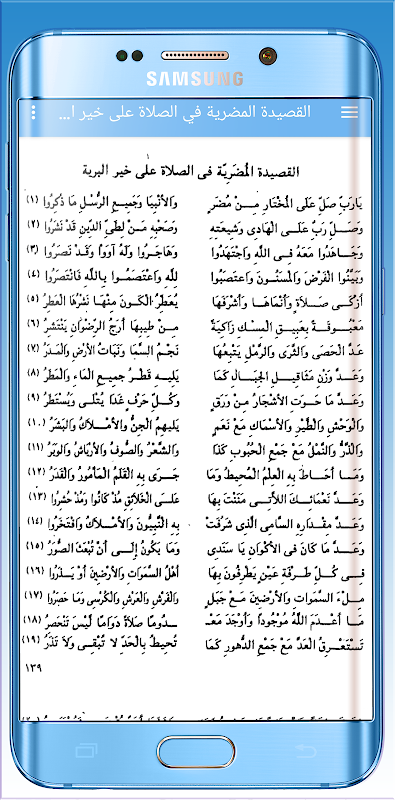 SAMSUNG
القصيدة المضرية في الصلاة على خير ا...
القصيدة المُضَريّة فى الصلاة على خير البرية
يَارَبِّ صَلِّ عَلَى المُخْتَارِ مِنْ مُضَرٍ وَالأَنْبِيَا وَجَمِيعِ الرُّسْلِ مَا ذُكِرُوا (١)
وَصَلِّ رَبِّ عَلَى الهَادِى وَشِيعَتِهِ وَصَحْبِهِ مَنْ لِطَيِّ الدِّينِ قَدْ نَشَرُوا (٢)
وَجَاهَدُوا مَعَهُ فِى اللَّهِ وَاجْتَهَدُوا وَهَاجَرُوا وَلَهُ آوَوْا وَقَدْ نَصَرُوا (٣)
وَبَيَّنُوا الفَرْضَ وَالمَسْنُونَ وَاعْتَصَبُوا لِلَّهِ وَاعْتَصَمُوا بِاللَّهِ فَانْتَصَرُوا (٤)
أَزْكَى صَلاَةٍ وَأَنْمَاهَا وَأَشْرَفَهَا يُعَطِّرُ الكَوْنَ مِنْهَا نَشْرُهَا العَطِرُ (٥)
مَعْبُوقَةً بِعَبِيقِ المِسْكِ زَاكِيَةً مِنْ طِيبِهَا أَرَجُ الرِّضْوَانِ يَنْتَشِرُ (٦)
عَدَّ الحَصَى وَالثَّرَى وَالرَّمْلِ يَتْبَعُهَا نَجْمُ السَّمَا وَنَبَاتُ الأَرْضِ وَالمَدَرُ (٧)
وَعَدَّ وَزْنِ مَثَاقِيلِ الجِبَالِ كَمَا يَلِيهِ قَطْرُ جَمِيعِ المَاءِ وَالمَطَرُ (٨)
وَعَدَّ مَا حَوَتِ الأَشْجَارُ مِنْ وَرَقٍ وَكُلِّ حَرْفٍ غَدَا يُتْلَى وَيُسْتَطَرُ (٩)
وَالوَحْشِ وَالطَّيْرِ وَالأَسْمَاكِ مَعْ نَعَمٍ يَلِيهِمُ الجِنُّ وَالأَمْلاَكُ وَالبَشَرُ (١٠)
وَالذَّرُّ وَالنَّمْلُ مَعْ جَمْعِ الحُبُوبِ كَذَا وَالشَّعْرُ وَالصُّوفُ وَالأَرْيَاشُ وَالوَبَرُ (١١)
وَمَا أَحَاطَ بِهِ العِلْمُ المُحِيطُ وَمَا جَرَى بِهِ القَلَمُ المَأْمُورُ وَالقَدَرُ (١٢)
وَعَدَّ نَعْمَائِكَ اللاَّتِى مَنَنْتَ بِهَا عَلَى الخَلاَئِقِ مُذْ كَانُوا وَمُذْ حُشِرُوا (١٣)
وَعَدَّ مِقْدَارِهِ السَّامِى الَّذِى شَرُفَتْ بِهِ النَّبِيُّونَ وَالأَمْلاَكُ وَافْتَخَرُوا (١٤)
وَعَدَّ مَا كَانَ فِى الأَكْوَانِ يَا سَنَدِى وَمَا يَكُونُ إِلَى أَنْ تُبْعَثَ الصُّوَرُ (١٥)
فِى كُلِّ طَرْفَةِ عَيْنٍ يَطْرِفُونَ بِهَا أَهْلُ السَّمَوَاتِ وَالأَرْضِينَ أَوْ يَذَرُوا (١٦)
مِلْءَ السَّمَوَاتِ وَالأَرْضِينَ مَعْ جَبَلٍ وَالفَرْشِ وَالعَرْشِ وَالكُرْسِى وَمَا حَصَرُوا (١٧)
مَا أَعْدَمَ اللَّهُ مَوْجُوداً وَأَوْجَدَ مَعْـ ـدُومًا صَلاَةً دَوَامًا لَيْسَ تَنْحَصِرُ (١٨)
تَسْتَغْرِقُ العَدَّ مَعْ جَمْعِ الدُّهُورِ كَمَا تُحِيطُ بِالحَدِّ لاَ تُبْقِى وَلاَ تَذَرُ (١٩)
١٣٩